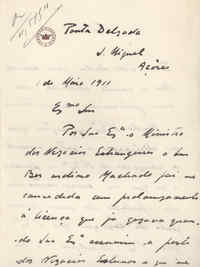 Ponta Delgada
S. Miguel
Açores
1 de Maio 1911
Exmo Snr
Por Sua Exa o Ministro
dos Negocios Estrangeiros o Snr
Bernardino Machado foi me
concedida um prolongamento
à licença que ja gozava quan-
do Sua Exa assumiu a pasta
dos Negocios Externos a que me